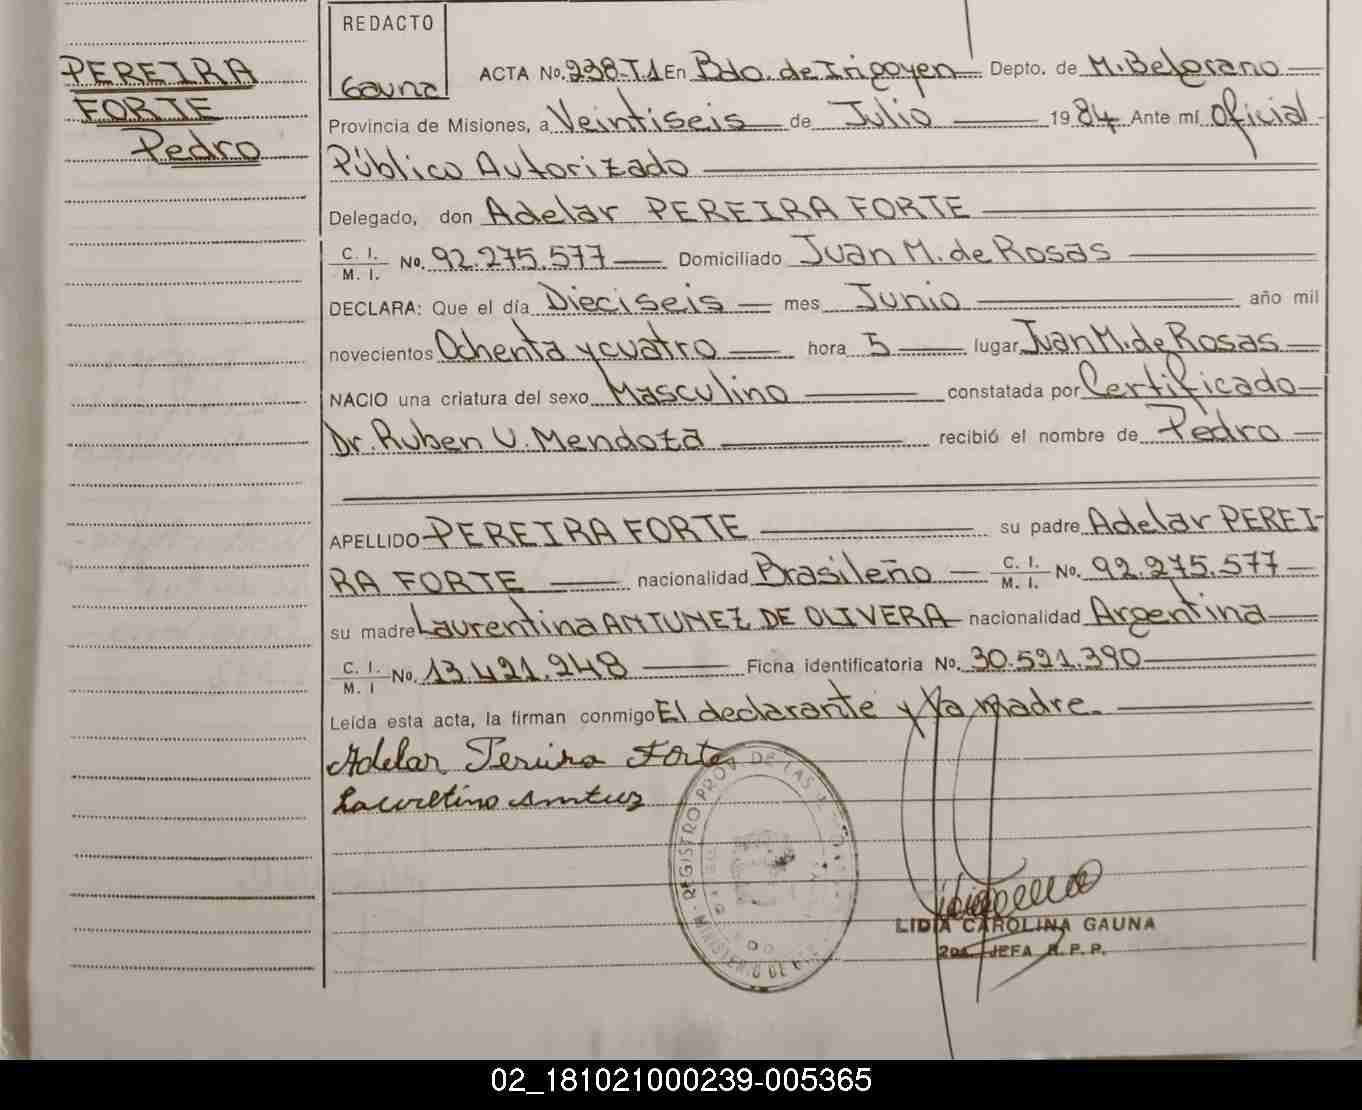 REDACTO
Gauna
PEREIRA
FORTE
Pedro
ACTA No. 238-T1 En Bdo. de Irigoyen Depto. de M. Belgrano
Provincia de Misiones, a Veintiseis de Julio 1984 Ante mí Oficial
Público Autorizado
Delegado, don Adelar PEREIRA FORTE
C. I.
M. I. No. 92.275.577 Domiciliado Juan M. de Rosas
DECLARA: Que el día Dieciseis mes Junio año mil
novecientos Ochenta y cuatro hora 5 lugar Juan M. de Rosas
NACIO una criatura del sexo Masculino constatada por Certificado
Dr. Ruben U. Mendoza recibió el nombre de Pedro
APELLIDO PEREIRA FORTE su padre Adelar PEREI-
RA FORTE nacionalidad Brasileño C. I. M. I. No. 92.275.577
su madre Laurentina ANTUNEZ DE OLIVERA nacionalidad Argentina
C. I.
M. I No. 13.421.248 Ficha identificatoria No. 30.521.390
Leída esta acta, la firman conmigo El declarante y la madre.
Adelar Pereira Forte
REGISTRO PROV. DE LAS
MINISTERIO DE
LIDIA CAROLINA GAUNA
2da. JEFA R.P.P.
02_181021000239-005365